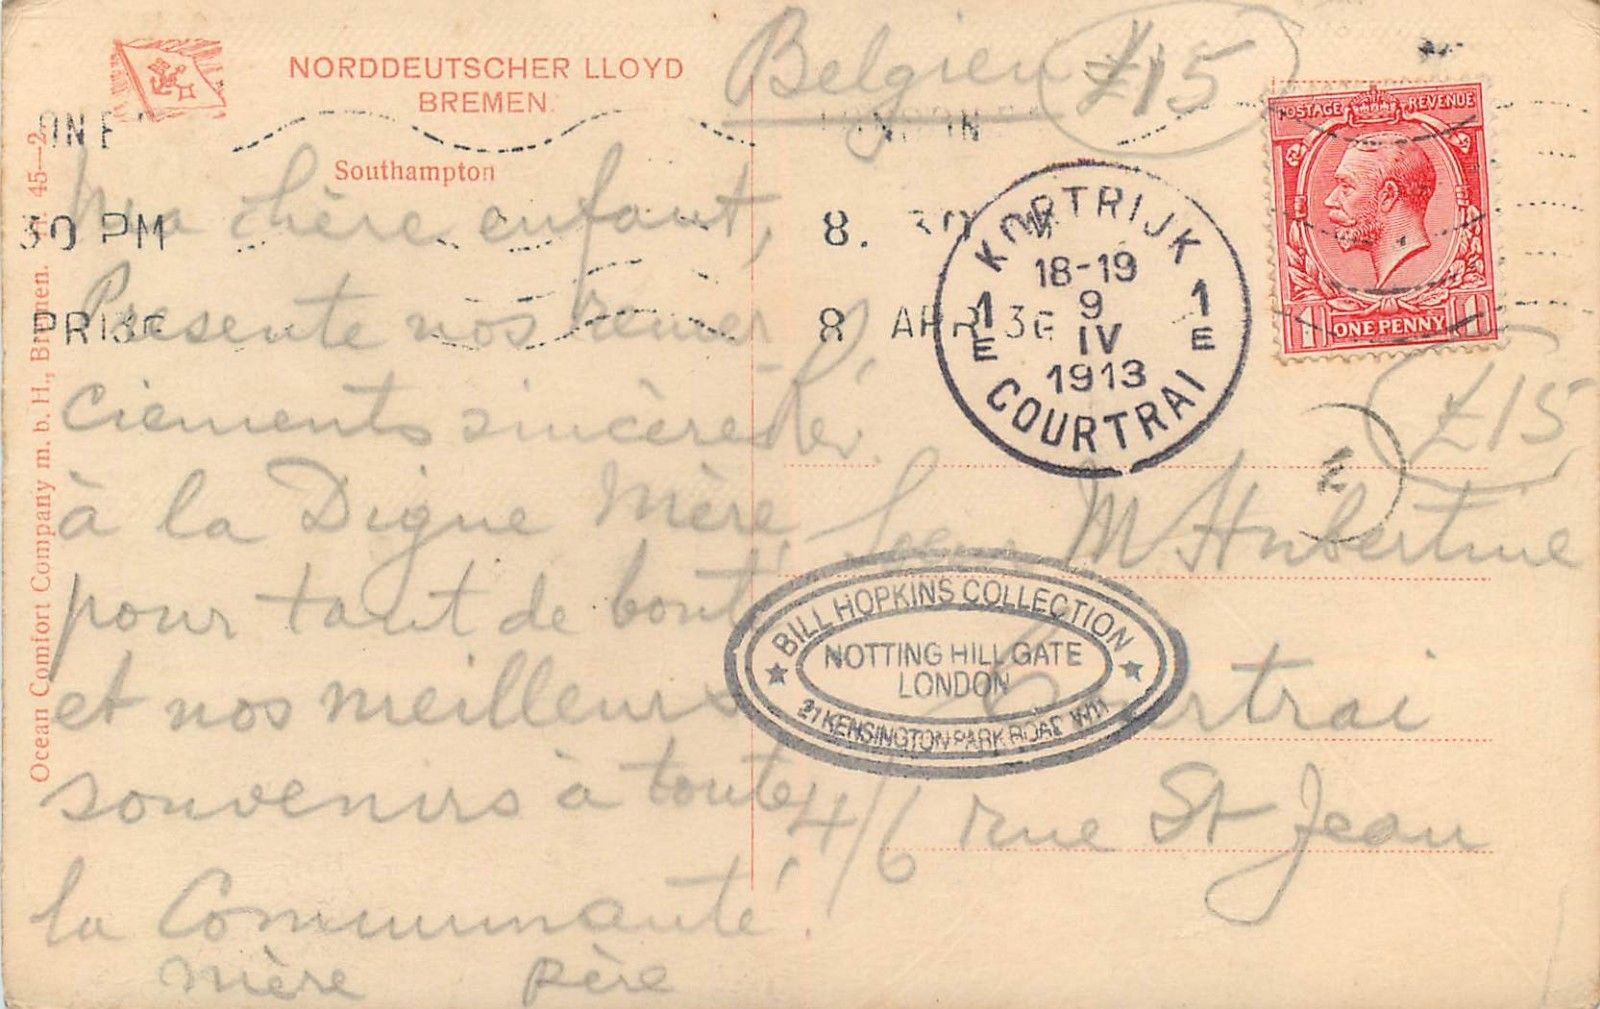 NORDDEUTSCHER LLOYD
BREMEN
Southampton
Belgien
£15
POSTAGE REVENUE
ONE PENNY
1 1
30 PM
8. 30
8 APR 13
KORTRIJK
18-19
1 9 1
E IV E
1913
COURTRAI
£15
Ma chère enfant,
Présente nos remer
ciements sincères
à la Digne Mère
pour tant de bonté
et nos meilleurs
souvenirs à toute
la Communauté.
mère père
Soeur M Hubertine
Courtrai
4/6 rue St Jean
BILL HOPKINS COLLECTION
NOTTING HILL GATE
LONDON
21 KENSINGTON PARK ROAD W11
Ocean Comfort Company m. b. H., Bremen. 45—2